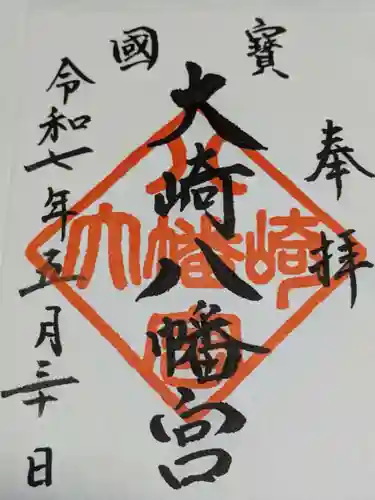 奉拝
寳國
大崎八幡宮
令和七年五月三十日
大崎八幡宮